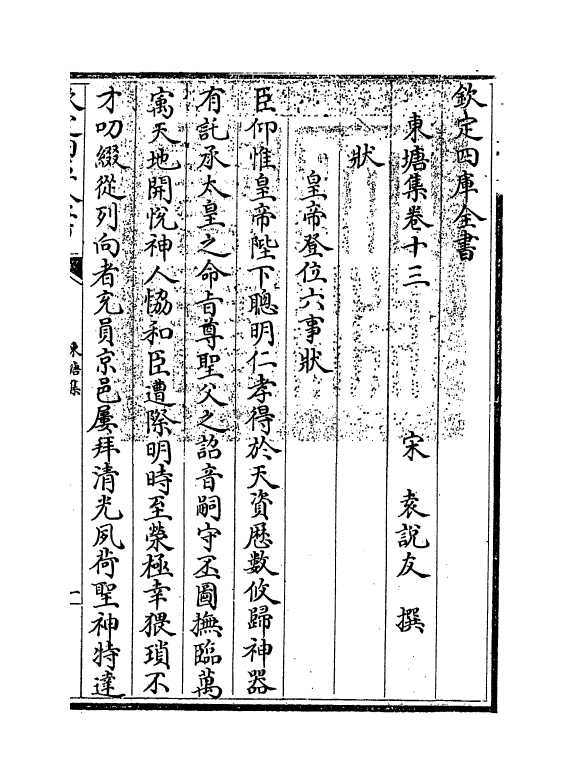 欽定四庫全書
東塘集卷十三
宋 袁說友 撰
狀
皇帝登位六事狀
臣仰惟皇帝陛下聰明仁孝得於天資厯數攸歸神器
有託承太皇之命㫖尊聖父之詔音嗣守丕圖撫臨萬
寓天地開悅神人恊和臣遭際明時至榮極幸猥瑣不
才叨綴從列向者充員京邑屢拜清光夙荷聖神特達
東塘集
一